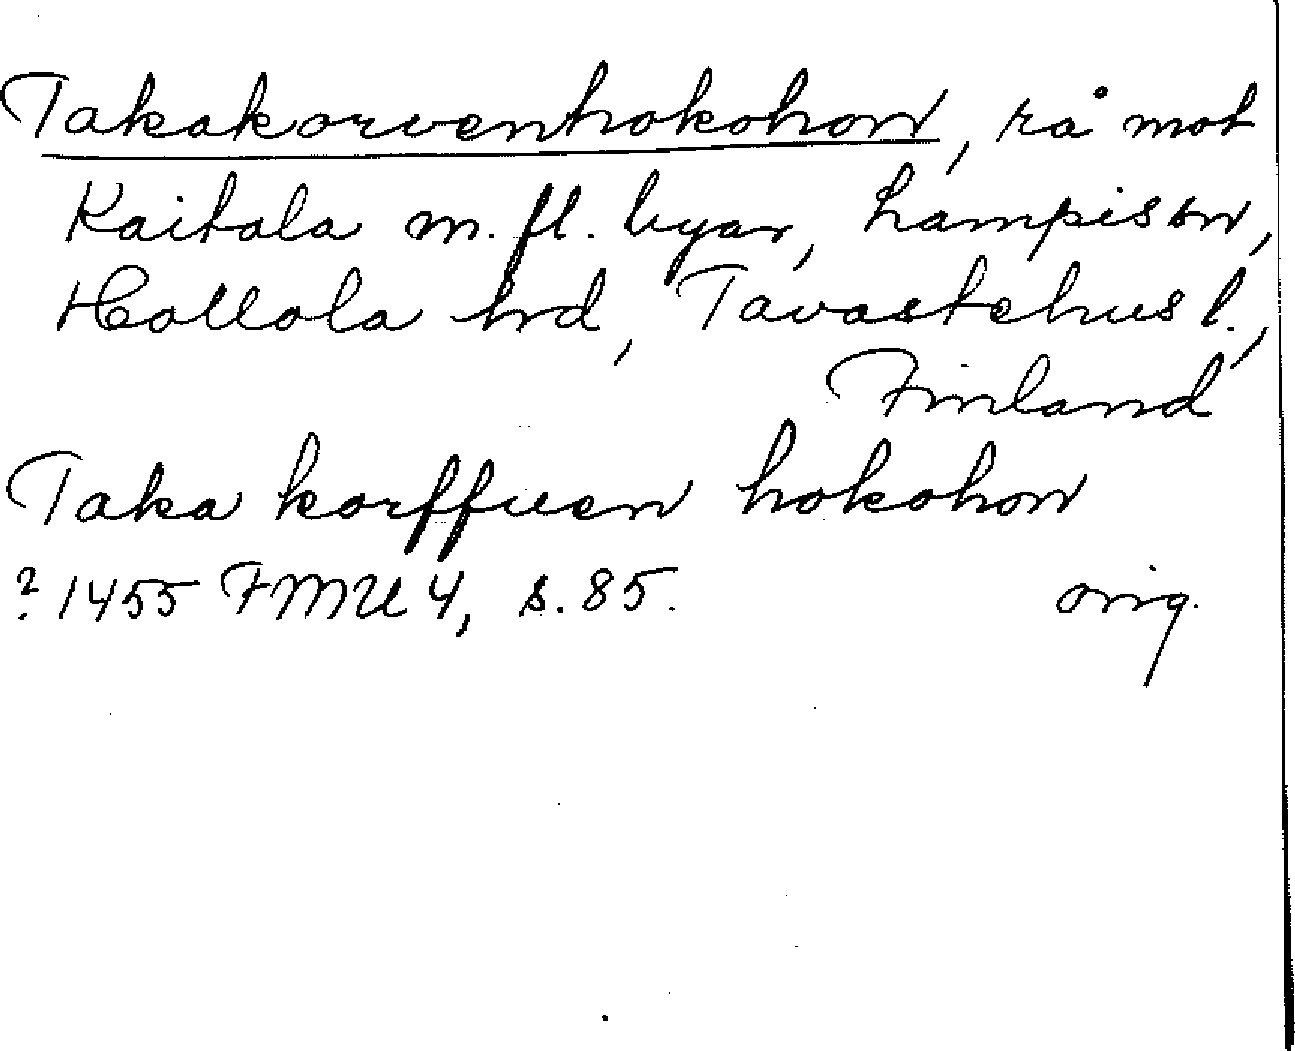 Takakorvenhokohon, rå mot
Kaitala m. fl. byar, Lampis sn,
Hollola hrd, Tavastehus l.,
Finland
Taka korffuen hokohon
? 1455 FMU 4, s. 85. orig.